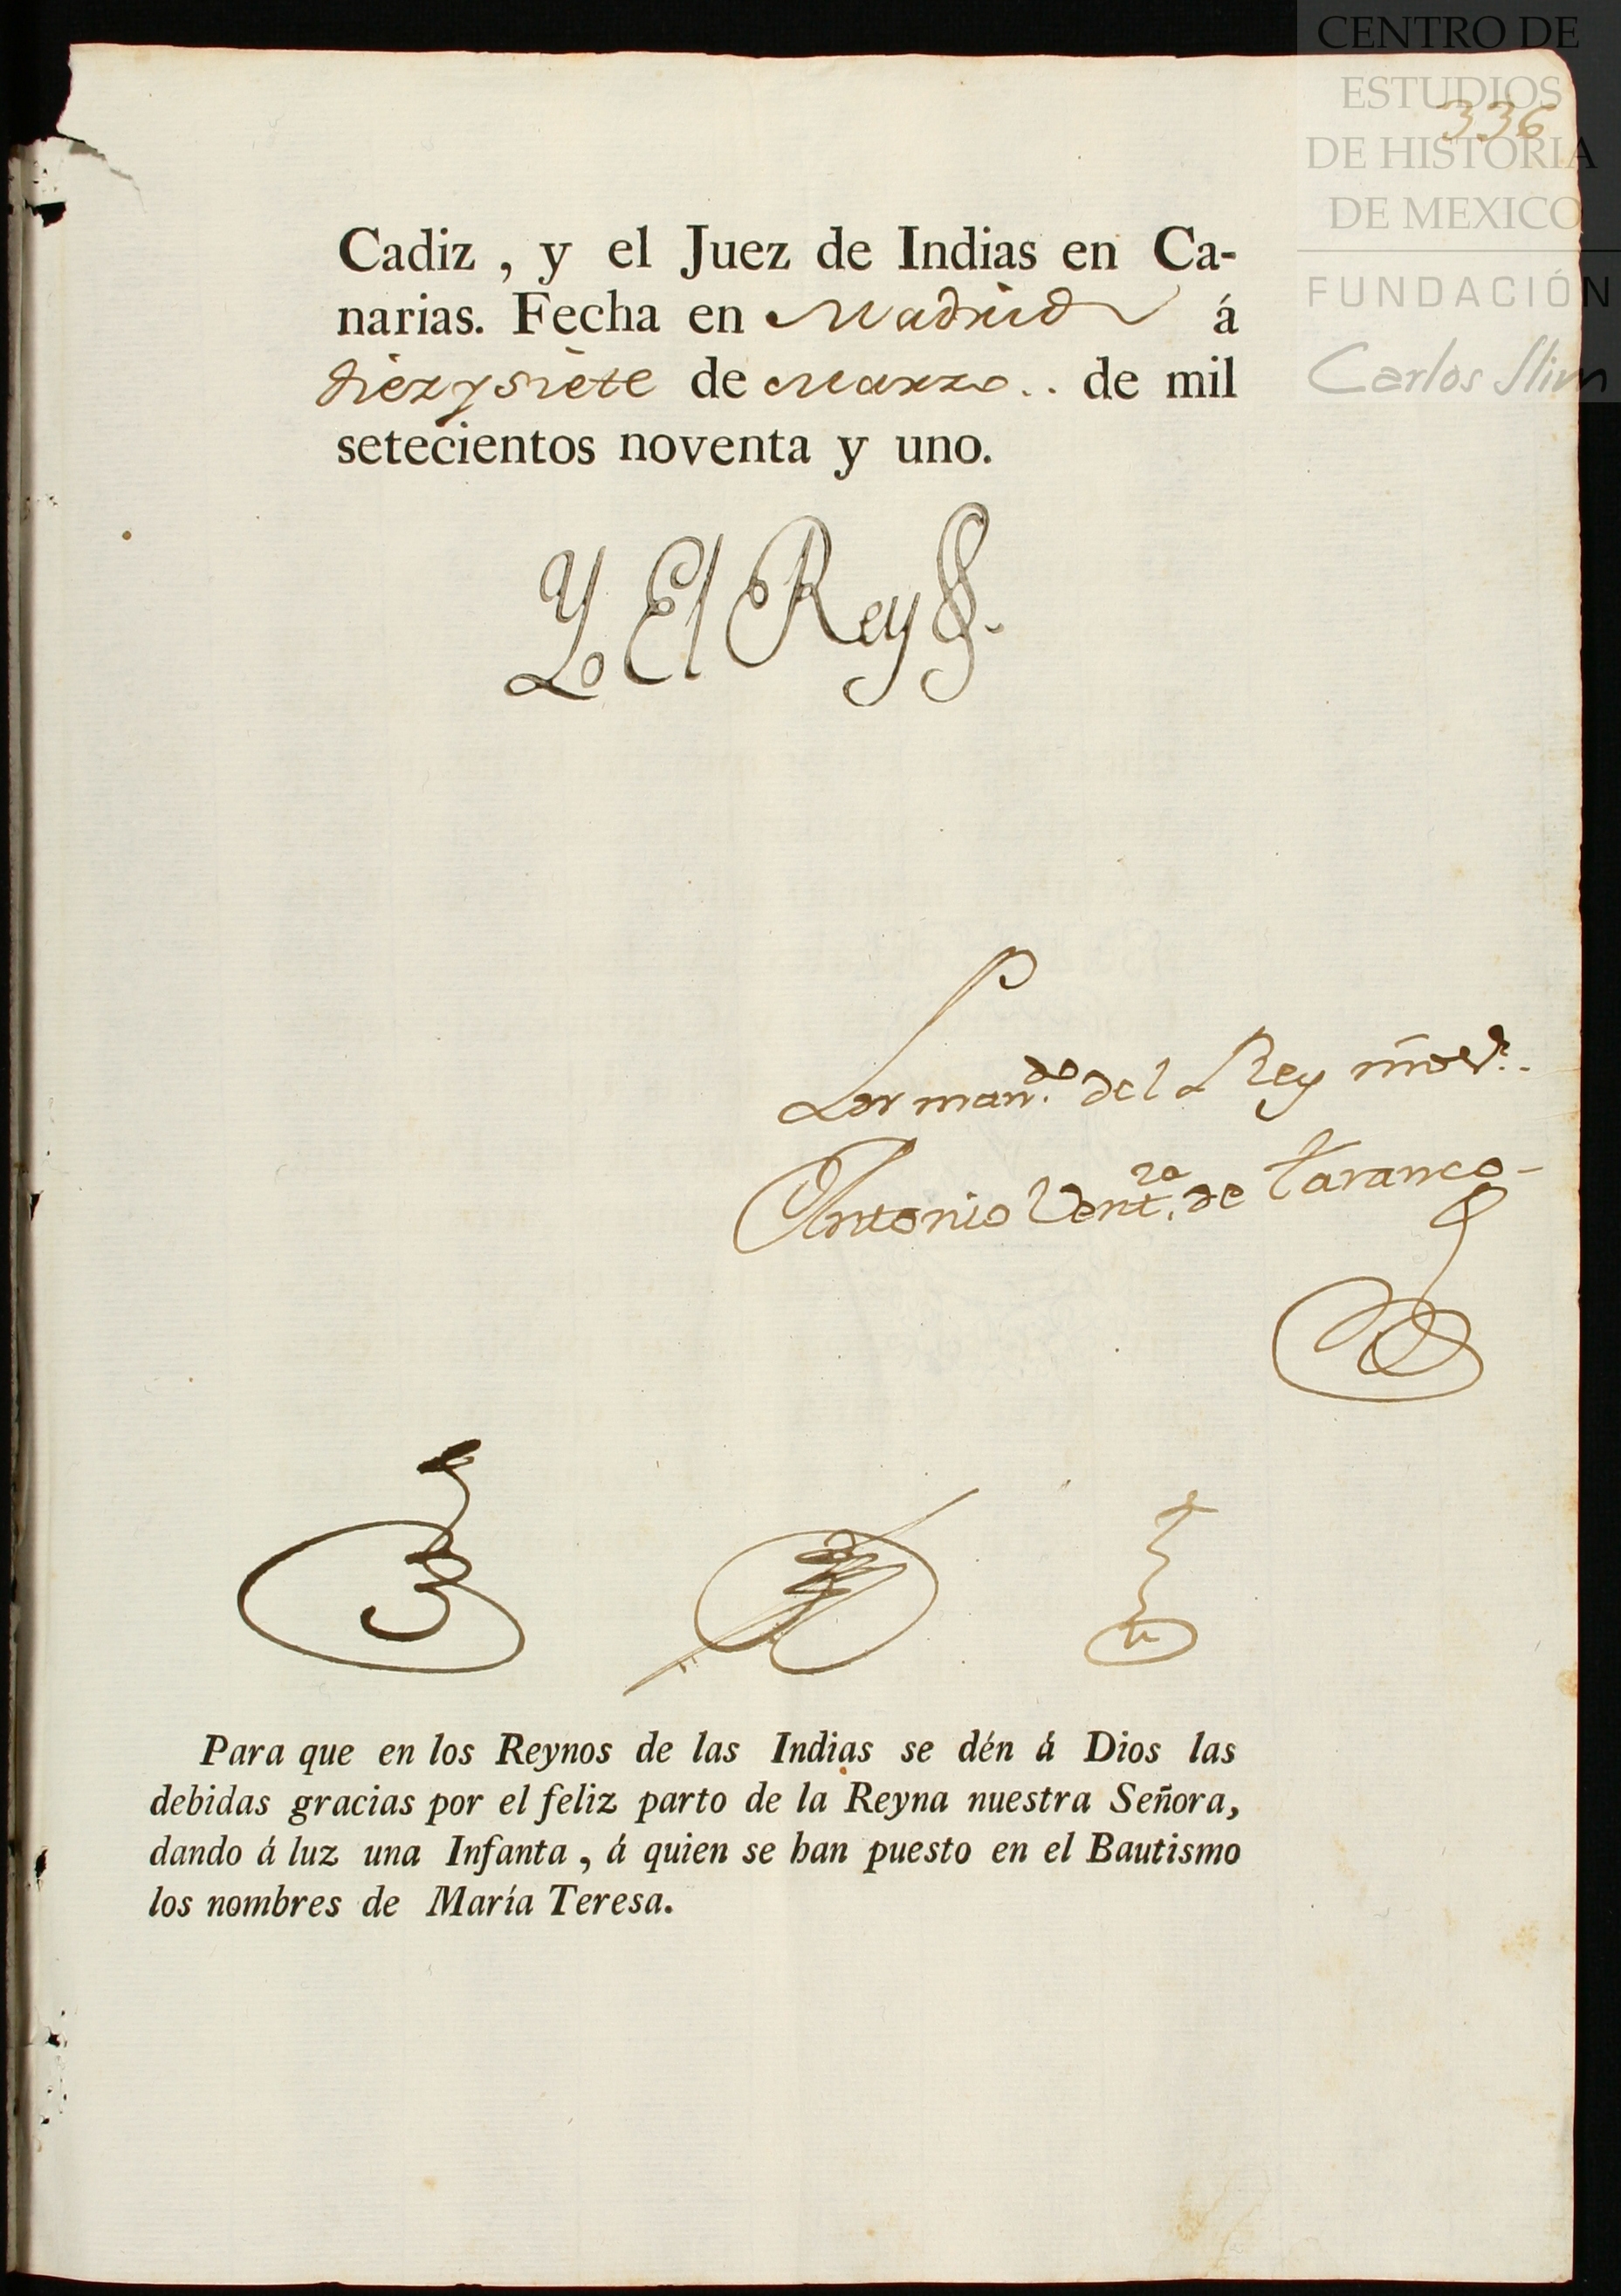 CENTRO DE
ESTUDIOS
DE HISTORIA
DE MEXICO
FUNDACIÓN
Carlos Slim
336
Cadiz , y el Juez de Indias en Ca-
narias. Fecha en Madrid á
diez y siete de Marzo .. de mil
setecientos noventa y uno.
Yo El Rey
Por man.do del Rey nro s.r
Antonio Vent.ra de Taranco
Para que en los Reynos de las Indias se dén á Dios las
debidas gracias por el feliz parto de la Reyna nuestra Señora,
dando á luz una Infanta , á quien se han puesto en el Bautismo
los nombres de María Teresa.